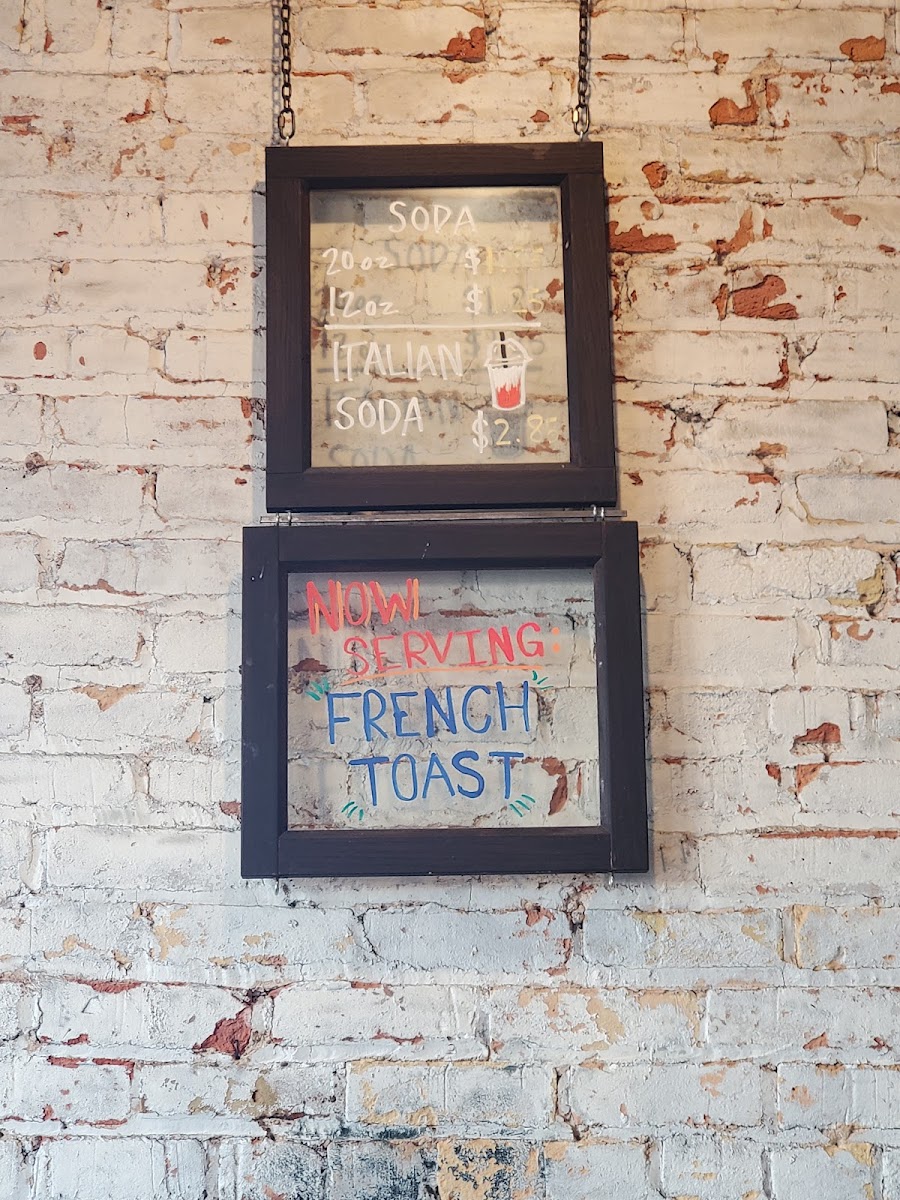 SODA
20 oz $
12oz $1.25
ITALIAN
SODA
$2.85
NOW
SERVING:
FRENCH
TOAST